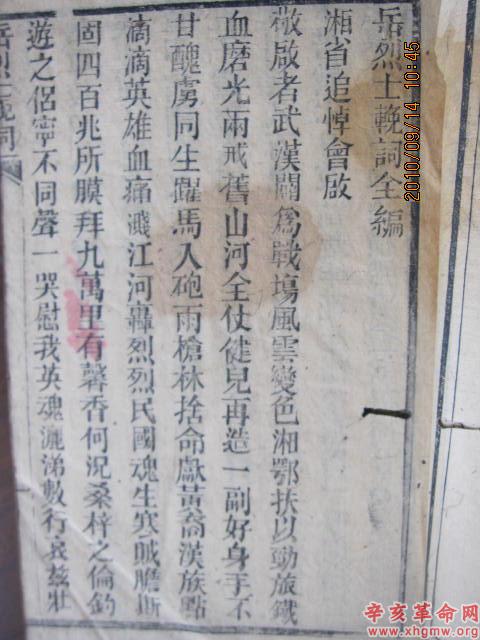 岳烈士輓詞全編
湘省追悼會啟
敬啟者武漢闢為戰塲風雲變色湘鄂扶以勁旅鐵
血磨光兩戒舊山河全仗健兒再造一副好身手不
甘醜虜同生躍馬入砲雨槍林捨命獻黃裔漢族點
滴滴英雄血痛濺江河轟烈烈民國魂生寒賊膽斯
固四百兆所膜拜九萬里有馨香何況桑梓之倫釣
遊之侶寧不同聲一哭慰我英魂灑涕數行哀茲壯
岳烈士輓詞
2010/09/14 10:45
辛亥革命网
www.xhgmw.org